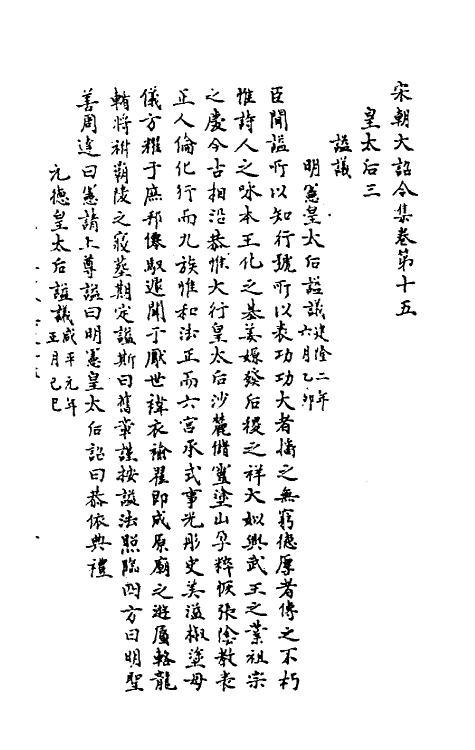 宋朝大詔令集卷第十五
皇太后三
諡議
明憲皇太后諡議建隆二年六月乙卯
臣聞諡所以知行號所以表功功大者播之無窮德厚者傳之不朽
惟詩人之詠本王化之基姜嫄發后稷之祥大姒興武王之業祖宗
之慶今古相沿恭惟大行皇太后沙麓儲靈塗山孕粹恢張陰教表
正人倫化行而九族惟和法正而六宮承式事光彤史美溢椒塗母
儀方耀于庶邦僊馭遽聞于厭世褘衣褕翟即成原廟之遊蜃輅龍
輴將祔霸陵之寢葬期定諡斯曰舊章謹按諡法照臨四方曰明聖
善周達曰憲請上尊諡曰明憲皇太后詔曰恭依典禮
元德皇太后諡議咸平元年正月己巳